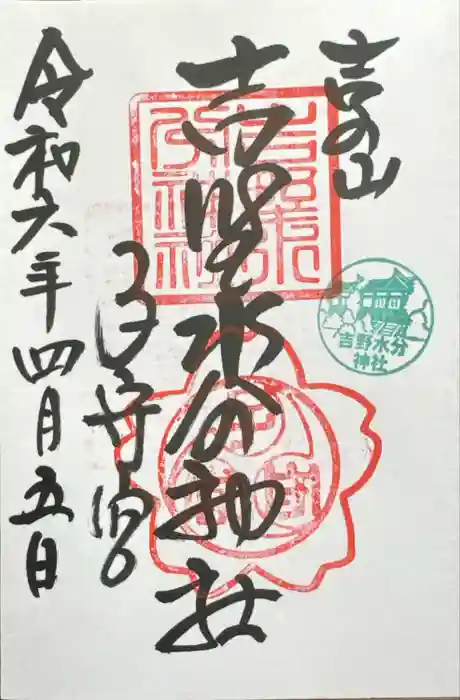 吉の山
吉野水分神社
子守宮
令和六年四月五日
吉野水分
神社